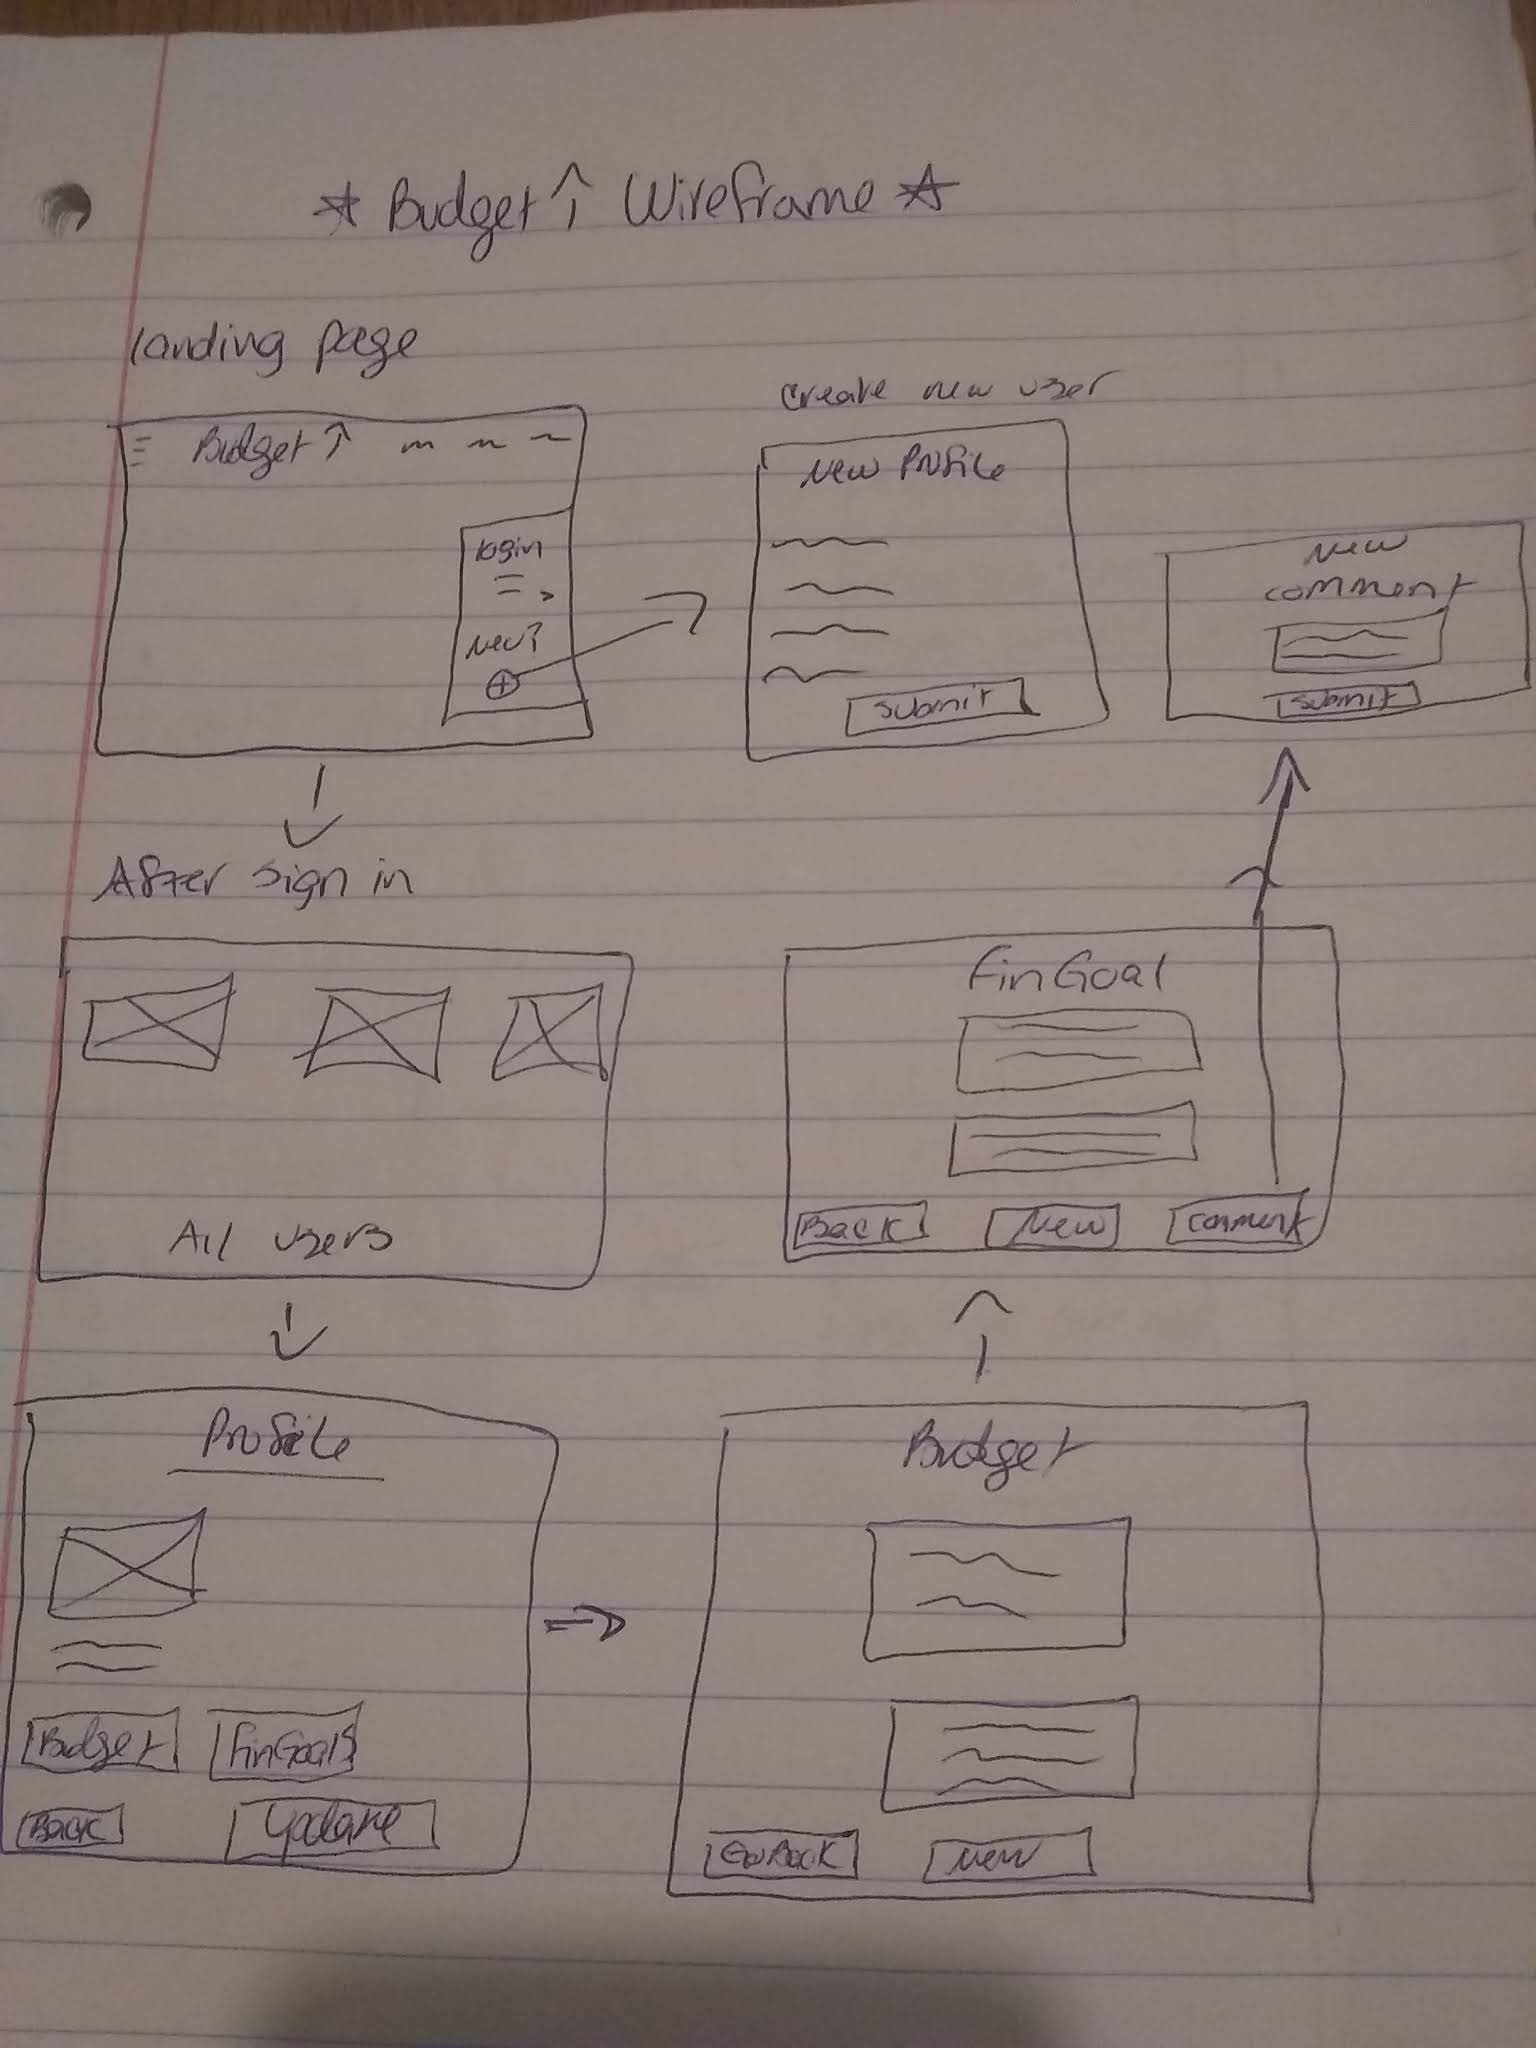 ☆ Budget↑ Wireframe ☆
landing page
Budget ↑
login
New?
create new user
New Profile
Submit
New
comment
Submit
After sign in
All users
FinGoal
Back New Comment
Profile
Budget FinGoals
Back Update
Budget
Go Back New